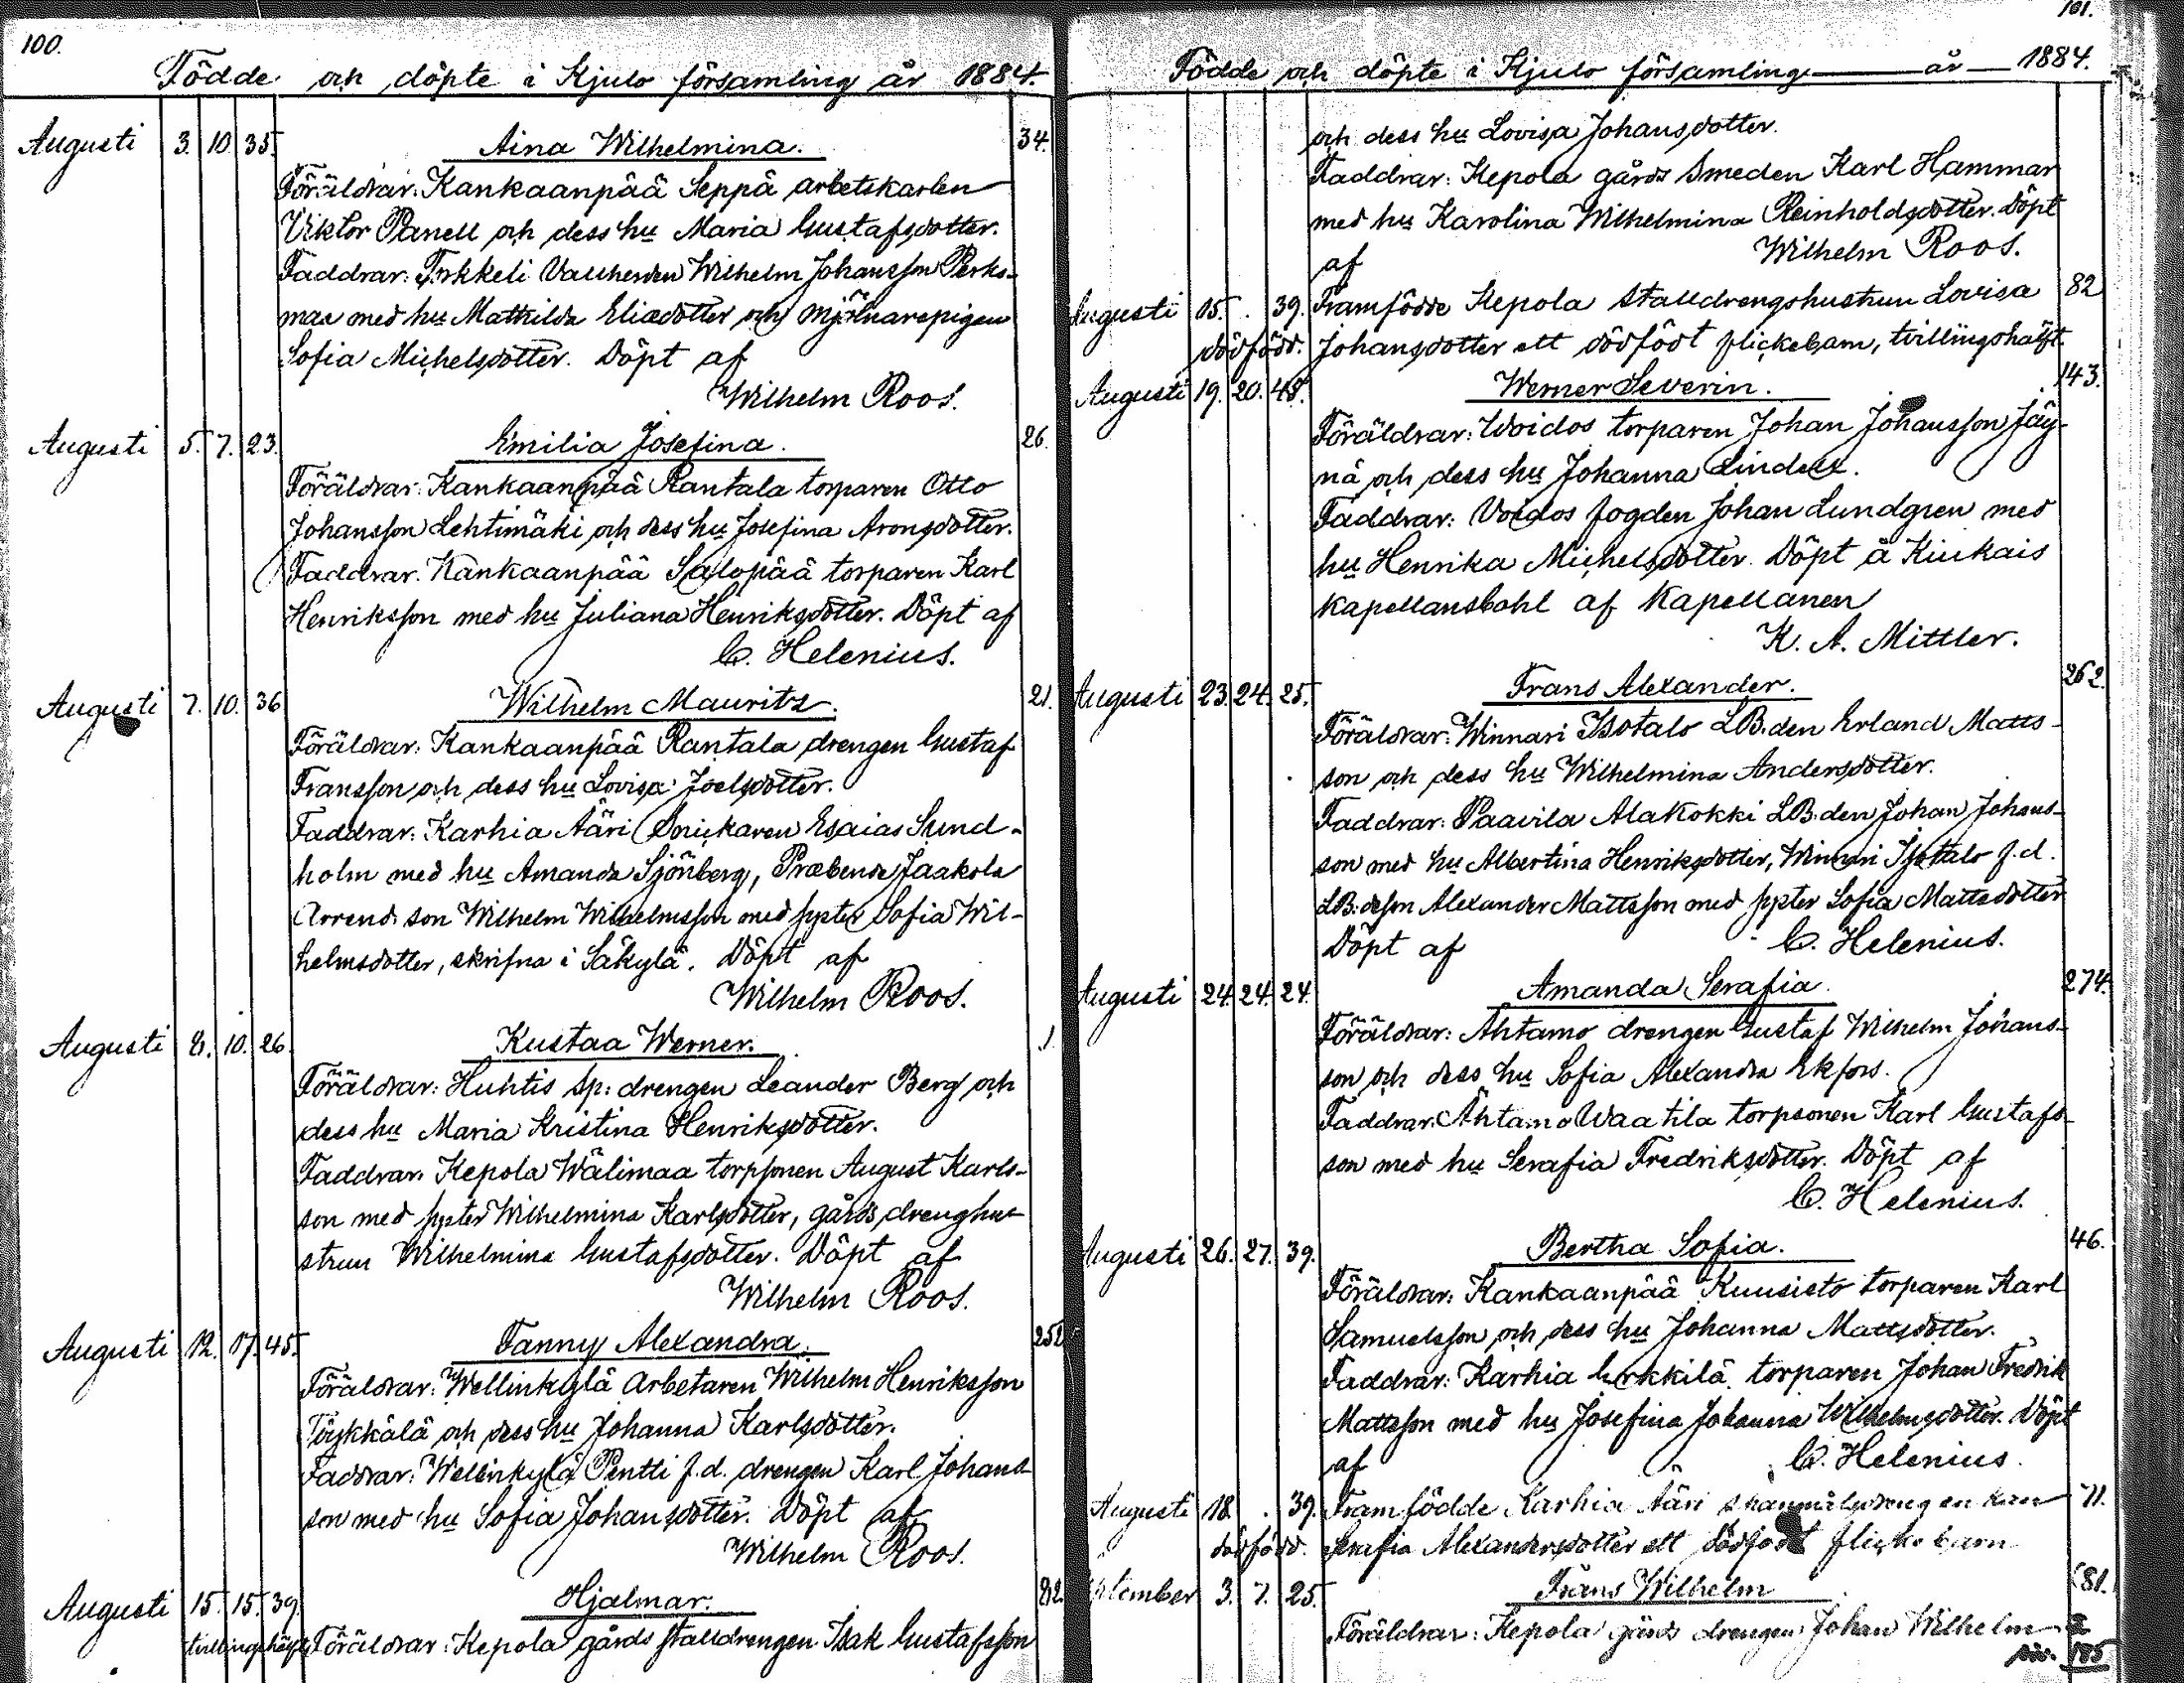 100.
Födde och döpte i Kjulo församling år 1884.
Augusti 3. 10. 35. Aina Wilhelmina. 34.
Föräldrar: Kankaanpää Seppä arbetskarlen
Viktor Panell och dess hu Maria Gustafsdotter.
Faddrar: Wilhelm Johansson Perko-
maa med hu Mathilda Eliædotter och mjölnarepigan
Sofia Michelsdotter. Döpt af
Wilhelm Roos.
Augusti 5. 7. 23. Emilia Josefina. 26.
Föräldrar: Kankaanpää Rantala torparen Otto
Johansson Lehtimäki och dess hu Josefina Aronsdotter.
Faddrar. Kankaanpää Salopää torparen Karl
Henriksson med hu Juliana Henriksdotter. Döpt af
C. Helenius.
Augusti 7. 10. 36 Wilhelm Mauritz. 21.
Föräldrar: Kankaanpää Rantala drengen Gustaf
Fransson och dess hu Lovisa Joelsdotter.
Faddrar: Karhia Ääri Snickaren Esaias Sund-
holm med hu Amanda Sjönberg, Præbende Jaakola
Arrend. son Wilhelm Wilhelmsson med syster Sofia Wil-
helmsdotter, skrifna i Säkylä. Döpt af
Wilhelm Roos.
Augusti 8. 10. 26. Kustaa Werner. 1.
Föräldrar: Huhtis sp: drengen Leander Berg och
dess hu Maria Kristina Henriksdotter.
Faddrar. Kepola Wälimaa torpsonen August Karls-
son med syster Wilhelmina Karlsdotter, gårds drenghu-
strun Wilhelmina Gustafsdotter. Döpt af
Wilhelm Roos.
Augusti 12. 17. 45. Fanny Alexandra. 252
Föräldrar: Wellinkylä Arbetaren Wilhelm Henriksson
Töykkälä och dess hu Johanna Karlsdotter.
Faddrar: Wellinkylä Pentti f.d. drengen Karl Johans-
son med hu Sofia Johansdotter. Döpt af
Wilhelm Roos.
Augusti 15. 15. 39. Hjalmar. 82.
tvillingshälft Föräldrar: Kepola gårds stalldrengen Isak Gustafsson
101.
Födde och döpte i Kjulo församling år 1884.
och dess hu Lovisa Johansdotter.
Faddrar: Kepola gårds Smeden Karl Hammar
med hu Karolina Wilhelmina Reinholdsdotter. Döpt
af Wilhelm Roos.
Augusti 15. . 39. Framfödde Kepola stalldrengshustrun Lovisa 82
dödfödd. Johansdotter ett dödfödt flickebarn, tvillingshälft.
Augusti 19. 20. 48. Werner Severin. 143.
Föräldrar: Woidos torparen Johan Johansson Jäy-
nä och dess hu Johanna Lindell.
Faddrar: Voidos fogden Johan Lundgren med
hu Henrika Michelsdotter. Döpt å Kiukais
Kapellansbohl af Kapellanen
K. A. Mittler.
Augusti 23. 24. 25. Frans Alexander. 262.
Föräldrar: Winnari Isotalo LB:den Erland Matts-
son och dess hu Wilhelmina Andersdotter.
Faddrar: Paavila Alakokki LB:den Johan Johans-
son med hu Albertina Henriksdotter, Winnari Isotalo f.d.
LB:deson Alexander Mattsson med syster Sofia Mattsdotter
Döpt af C. Helenius.
Augusti 24. 24. 24. Amanda Serafia. 274.
Föräldrar: Ahtamo drengen Gustaf Wilhelm Johans-
son och dess hu Sofia Alexandra Ekfors.
Faddrar. Ahtamo Waatila torpsonen Karl Gustafs-
son med hu Serafia Fredriksdotter. Döpt af
C. Helenius.
Augusti 26. 27. 39. Bertha Sofia. 46.
Föräldrar: Kankaanpää Kuusisto torparen Karl
Samuelsson och dess hu Johanna Mattsdotter.
Faddrar: Karhia torparen Johan Fredrik
Mattsson med hu Josefina Johanna Wilhelmsdotter. Döpt
af C. Helenius.
Augusti 18. . 39. Framfödde Karhia Ääri 71.
dödfödd. Serafia Alexandersdotter ett dödfödt flickebarn
September 3. 7. 25. Frans Wilhelm 81.
Föräldrar: Kepola gårds drengen Johan Wilhelm
185